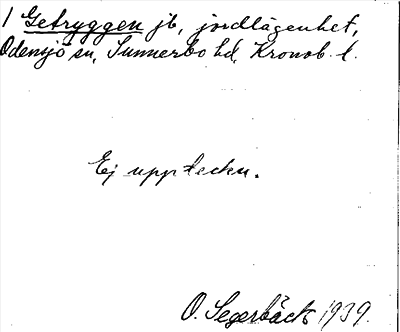 1 Getryggen jb, jordlägenhet,
Odensjö sn, Sunnerbo hd, Kronob. l.
Ej uppteckn.
O. Segerbäck 1939.